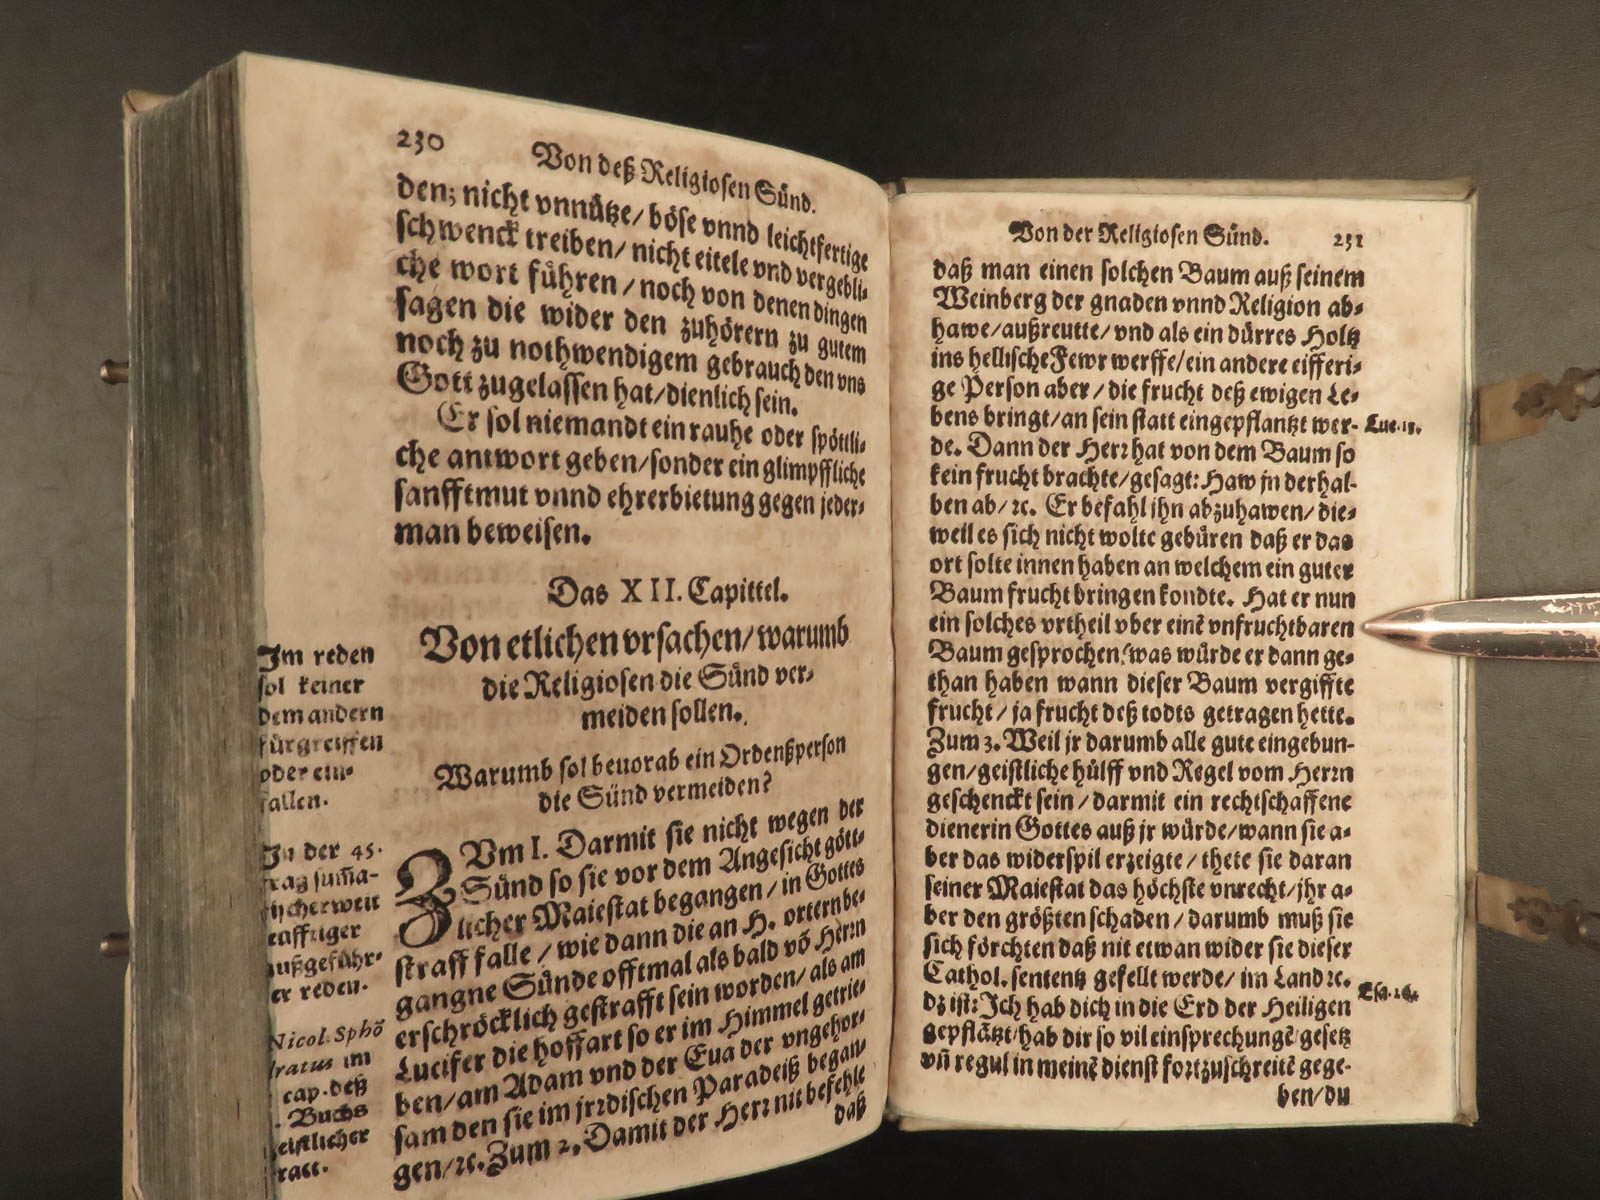 230
Von deß Religiosen Sünd.
den; nicht vnnütze/ böse vnnd leichtfertige
schwenck treiben/ nicht eitele vnd vergebli⸗
che wort führen/ noch von denen dingen
sagen die wider den zuhörern zu gutem
noch zu nothwendigem gebrauch den vns
Gott zugelassen hat/ dienlich sein.
Er sol niemandt ein rauhe oder spöttli⸗
che antwort geben/ sonder ein glimpffliche
sanfftmut vnnd ehrerbietung gegen jeder⸗
man beweisen.
Das XII. Capittel.
Von etlichen vrsachen/ warumb
die Religiosen die Sünd ver⸗
meiden sollen.
Warumb sol beuorab ein Ordenßperson
die Sünd vermeiden?
ZVm I. Darmit sie nicht wegen der
Sünd so sie vor dem Angesicht gött⸗
licher Maiestat begangen/ in Gottes
straff falle/ wie dann die an H. orternbe⸗
gangne Sünde offtmal als bald võ Herrn
erschröcklich gestrafft sein worden/ als am
Lucifer die hoffart so er im Himmel getrie⸗
ben/ am Adam vnd der Eua der vngehor⸗
sam den sie im jrrdischen Paradeiß began⸗
gen/ ꝛc. Zum 2. Damit der Herr nit befehle
daß
Im reden
sol keiner
dem andern
fürgreiffen
oder ein⸗
fallen.
In der 45.
frag sum̃a-
reden.
Nicol. Sphõ
im
cap. deß
Buchs
Von der Religiosen Sünd.
231
daß man einen solchen Baum auß seinem
Weinberg der gnaden vnnd Religion ab⸗
hawe/ außreutte/ vnd als ein dürres Holtz
ins hellische Fewr werffe/ ein andere eifferi⸗
ge Person aber/ die frucht deß ewigen Le⸗
bens bringt/ an sein statt eingepflantzt wer-
de. Dann der Herr hat von dem Baum so
kein frucht brachte/ gesagt: Haw jn derhal-
ben ab/ ꝛc. Er befahl ihn abzuhawen/ die⸗
weil es sich nicht wolte gebüren daß er das
ort solte innen haben an welchem ein guter
Baum frucht bringen kondte. Hat er nun
ein solches vrtheil vber einẽ vnfruchtbaren
Baum gesprochen/ was würde er dann ge⸗
than haben wann dieser Baum vergiffte
frucht/ ja frucht deß todts getragen hette.
Zum 3. Weil jr darumb alle gute eingebun-
gen/ geistliche hülff vnd Regel vom Herrn
geschenckt sein/ darmit ein rechtschaffene
dienerin Gottes auß jr würde/ wann sie a⸗
ber das widerspil erzeigte/ thete sie daran
seiner Maiestat das höchste vnrecht/ jhr a⸗
ber den größten schaden/ darumb muß sie
sich förchten daß nit etwan wider sie dieser
Cathol. sententz gefellt werde/ im Land ꝛc.
dz ist: Ich hab dich in die Erd der Heiligen
gepflãtzt/ hab dir so vil einsprechungẽ/ gesetz
vñ regul in meinẽ dienst fortzuschreitẽ gege⸗
ben/ du
Luc. 13.
Esa. 26.